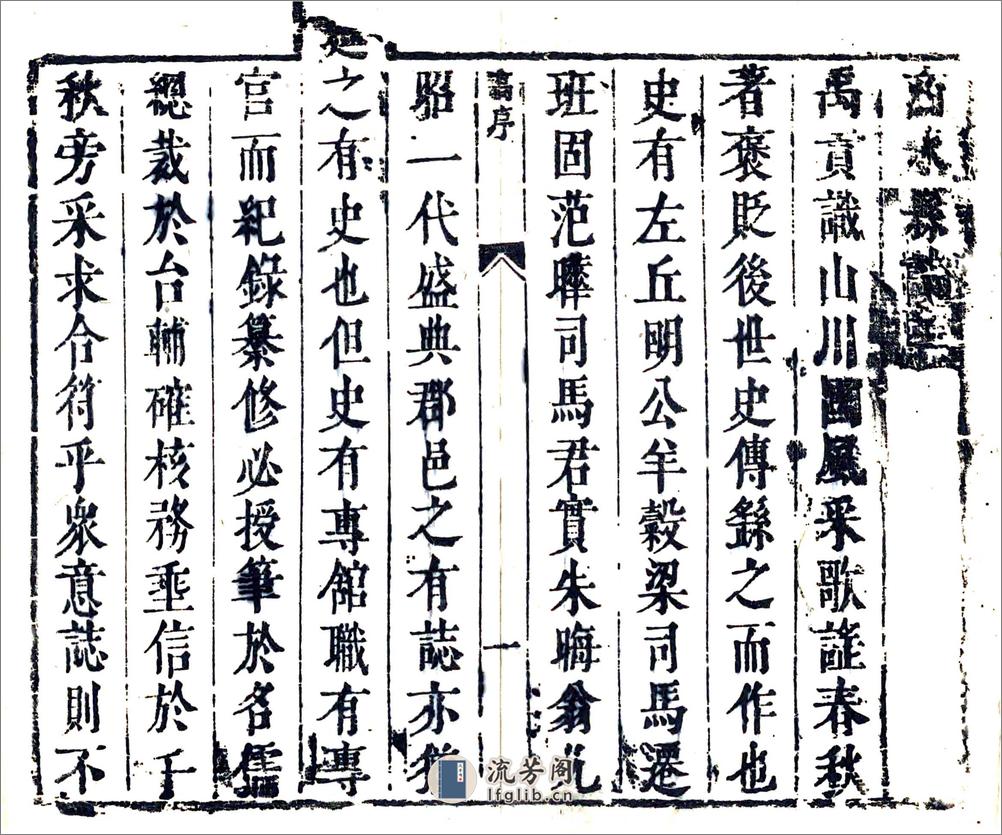 商水縣誌
禹貢識山川國風采歌謡春秋
著褒貶後世史傳繇之而作也
史有左丘明公羊穀梁司馬遷
班固范曄司馬君實朱晦翁光
序
一
昭一代盛典郡邑之有誌亦猶
廷之有史也但史有專舘職有專
官而紀錄纂修必授筆於名儒
總裁於台輔確核務垂信於千
秋旁采求合符乎衆意誌則不
流芳阁
lfglib.cn